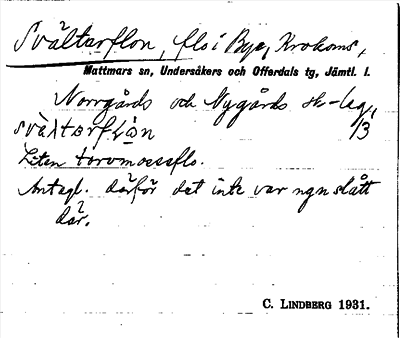 Svältarflon, flo i Bye, Krokoms,
Mattmars sn, Undersåkers och Offerdals tg, Jämtl. l.
Norrgårds och Nygårds sk-lag,
svàltarflȧn 1/3
Liten torvmossflo.
Antagl. därför det inte var ngn slått
där.
C. LINDBERG 1931.